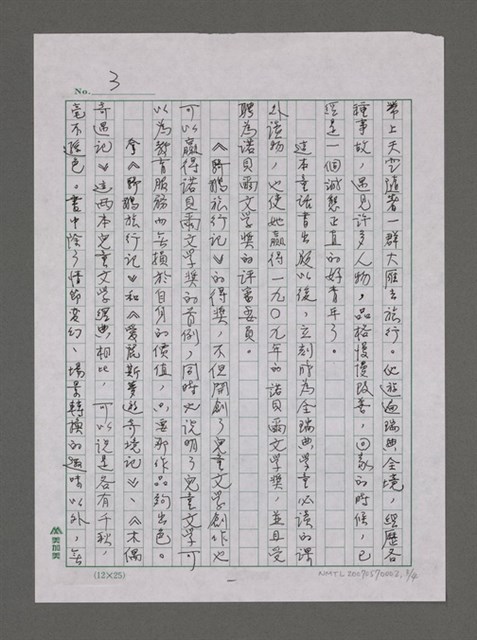 No. 3
帶上天空隨著一群大雁去旅行。他遊遍瑞典全境，經歷各
種事故，遇見許多人物，品格慢慢改善，回家的時候，已
經是一個誠懇正直的好青年了。
這本童話書出版以後，立刻成為全瑞典學童必讀的課
外讀物，也使她贏得一九○九年的諾貝爾文學獎，並且受
聘為諾貝爾文學獎的評審委員。
《騎鵝旅行記》的得獎，不但開創了兒童文學創作也
可以贏得諾貝爾文學獎的首例，同時也說明了兒童文學可
以為教育服務而無損於自身的價值，只要那作品夠出色。
拿《騎鵝旅行記》和《愛麗斯夢遊奇境記》、《木偶
奇遇記》這兩本兒童文學經典相比，可以說是各有千秋，
毫不遜色。書中除了情節變幻、場景轉換的趣味以外，無
(12×25)
NMTL20070570002, 3/4